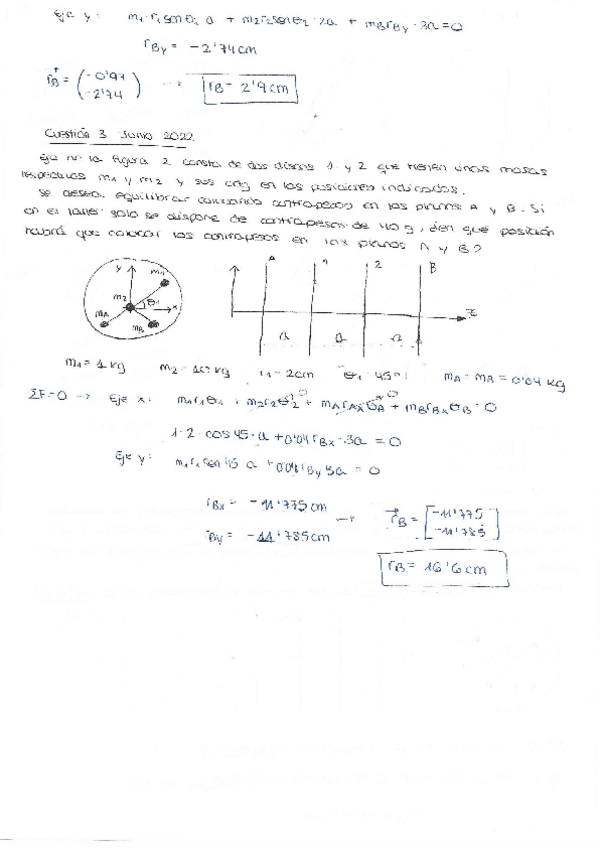 Eje y: m1·r1senθ1 a + m2r2senθ2·2a + mBrBy·3a=0
rBy = -2'74cm
rB = (-0'97 -2'74) → rB= 2'9cm
Cuestión 3 Junio 2022
Eje de la figura 2 consta de dos discos 1 y 2 que tienen unas masas
respectivas m1 y m2 y sus cdg en las posiciones indicadas.
Se desea equilibrar colocando contrapesos en los planos A y B. Si
en el taller solo se dispone de contrapesos de 40g, ¿en qué posición
habrá que colocar los contrapesos en los planos A y B?
y m1 A 1 2 B
m2 θ1 x z
mA mB a a a
m1 = 1 kg m2 = kg r1 = 2cm θ1 = 45° mA = mB = 0'04 kg
ΣF=0 → Eje x: m1r1θ1 + m2r2θ2 0 + mArAxθA 0 + mBrBxθB = 0
1·2·cos45·a + 0'04rBx·3a = 0
Eje y: m1r1sen45 a + 0'04rBy3a = 0
rBx = -11'775cm
rBy = -11'785cm → rB = [-11'775 -11'785]
rB = 16'6cm